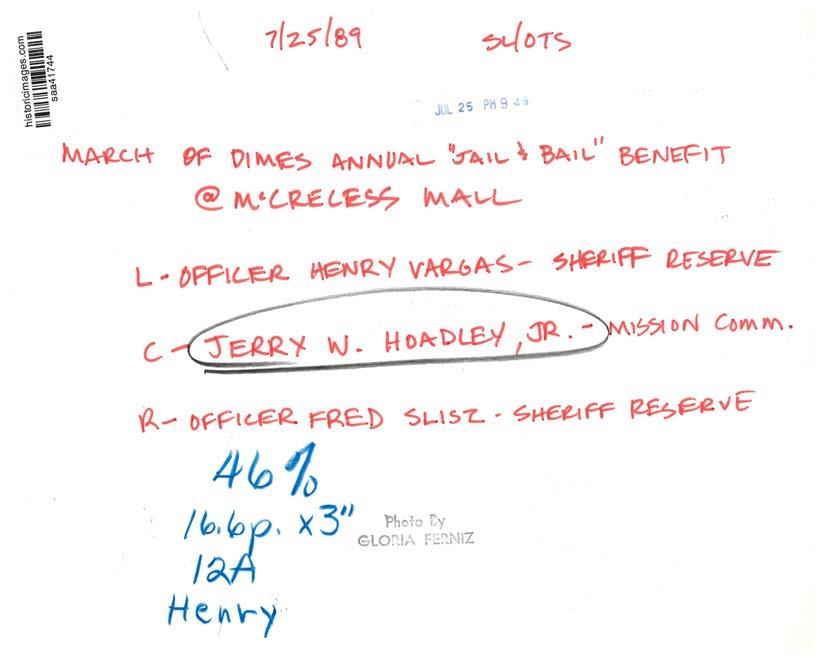 historicimages.com
saa41744
7/25/89 SL/OTS
JUL 25 PM 9 46
MARCH OF DIMES ANNUAL "JAIL & BAIL" BENEFIT
@ McCRELESS MALL
L - OFFICER HENRY VARGAS - SHERIFF RESERVE
C - JERRY W. HOADLEY, JR. - MISSION Comm.
R - OFFICER FRED SLISZ - SHERIFF RESERVE
46%
16.6p. x 3"
12A
Henry
Photo By
GLORIA FERNIZ